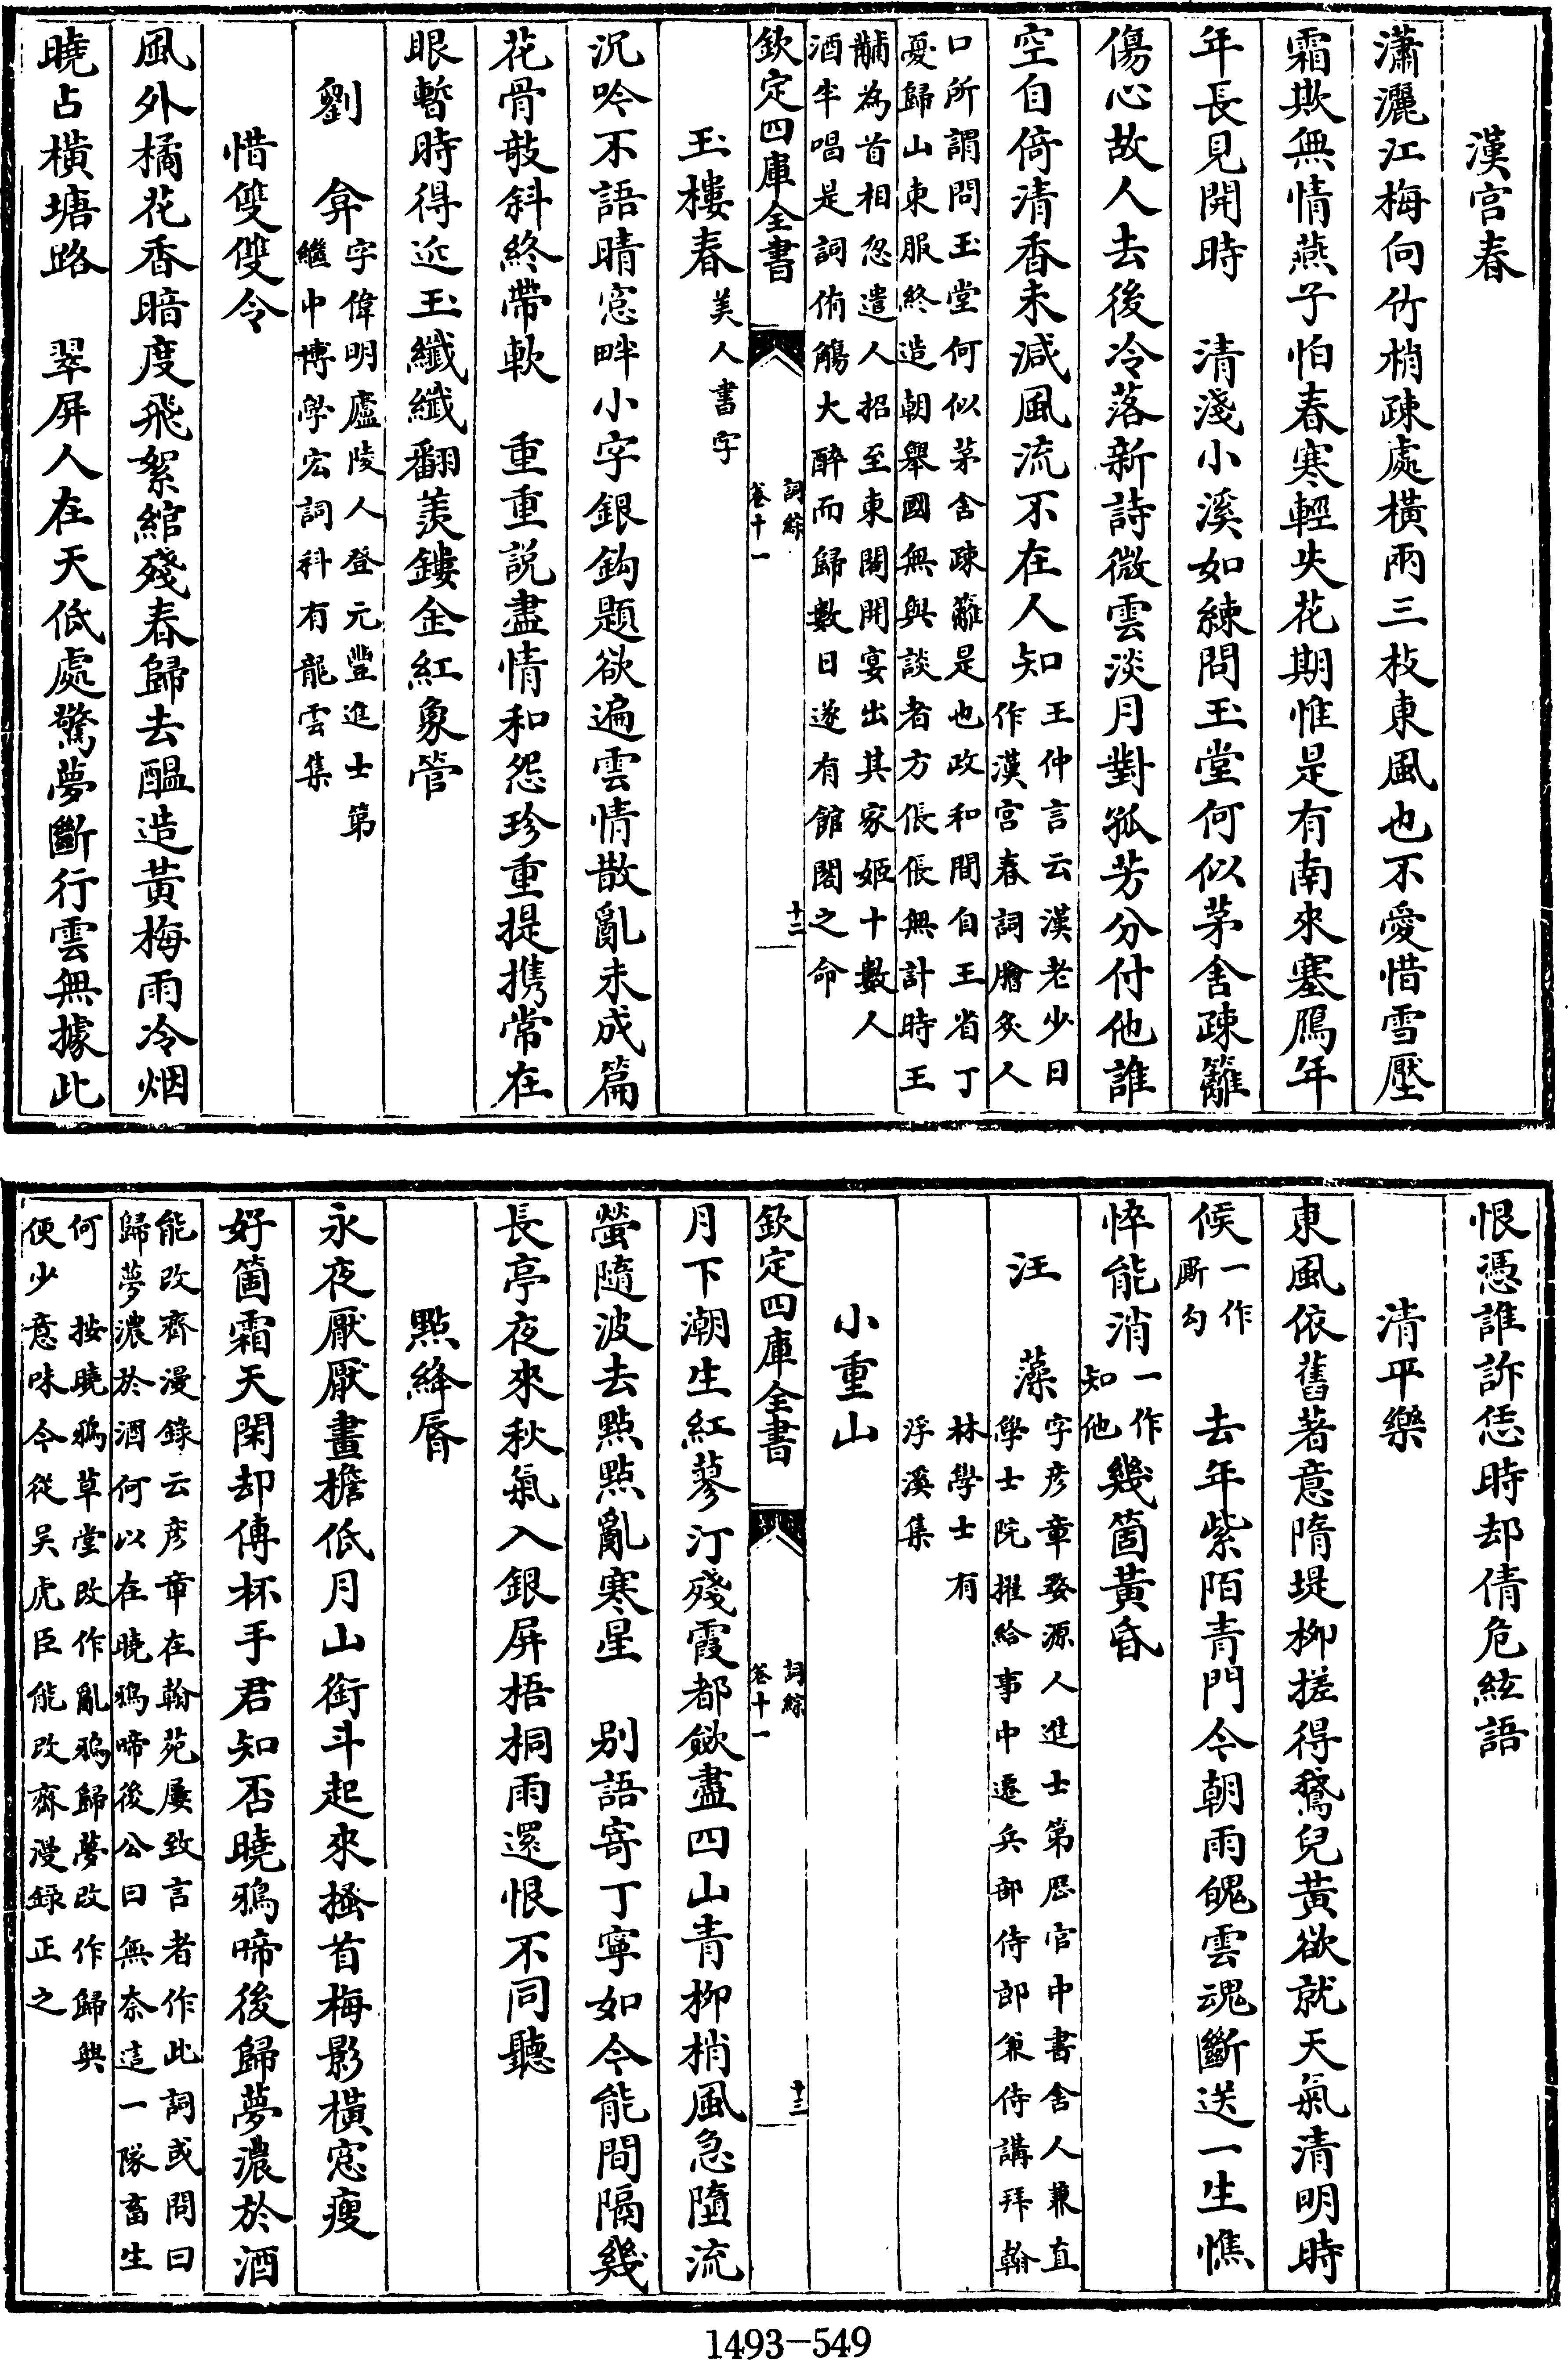 漢宫春
瀟灑江梅向竹梢疎處橫兩三枝東風也不愛惜雪壓
霜欺無情燕子怕春寒輕失花期惟是有南來塞鴈年
年長見開時　清淺小溪如練問玉堂何似茅舍疎籬
傷心故人去後冷落新詩微雲淡月對孤芳分付他誰
空自倚清香未減風流不在人知
王仲言云漢老少日
作漢宫春詞膾炙人
口所謂問玉堂何似茅舍疎籬是也政和間自王省丁
憂歸山東服終造朝舉國無與談者方倀倀無計時王
黼為首相忽遣人招至東閣開宴出其家姬十數人
酒半唱是詞侑觴大醉而歸數日遂有館閣之命
欽定四庫全書
詞綜
卷十一
十二
玉樓春
美人書字
沉吟不語晴窓畔小字銀鈎題欲遍雲情散亂未成篇
花骨敧斜終帶軟　重重説盡情和怨珍重提携常在
眼暫時得近玉纖纖翻羡鏤金紅象管
劉　弇
字偉明廬陵人登元豐進士第
繼中博學宏詞科有龍雲集
惜雙雙令
風外橘花香暗度飛絮綰殘春歸去醞造黃梅雨冷烟
曉占橫塘路　翠屏人在天低處驚夢斷行雲無據此
恨憑誰訴恁時却倩危絃語
清平樂
東風依舊著意隋堤柳搓得鵞兒黃欲就天氣清明時
候
一作
厮勾
去年紫陌青門今朝雨魄雲魂斷送一生憔
悴能消
一作
知他
幾箇黃昏
汪　藻
字彦章婺源人進士第歷官中書舍人兼直
學士院擢給事中遷兵部侍郎兼侍講拜翰
林學士有
浮溪集
小重山
月下潮生紅蓼汀殘霞都歛盡四山青柳梢風急墮流
螢隨波去點點亂寒星　别語寄丁寧如今能間隔幾
長亭夜來秋氣入銀屏梧桐雨還恨不同聽
點絳脣
永夜厭厭畫檐低月山銜斗起來搔首梅影橫窓瘦
好箇霜天閑却傳杯手君知否曉鴉啼後歸夢濃於酒
能改齊漫錄云彦章在翰苑屢致言者作此詞或問曰
歸夢濃於酒何以在曉鴉啼後公曰無奈這一隊畜生
何　按曉鴉草堂改作亂鴉歸夢改作歸興
便少意味今從吴虎臣能改齋漫録正之
欽定四庫全書
詞綜
卷十一
十三
1493-549